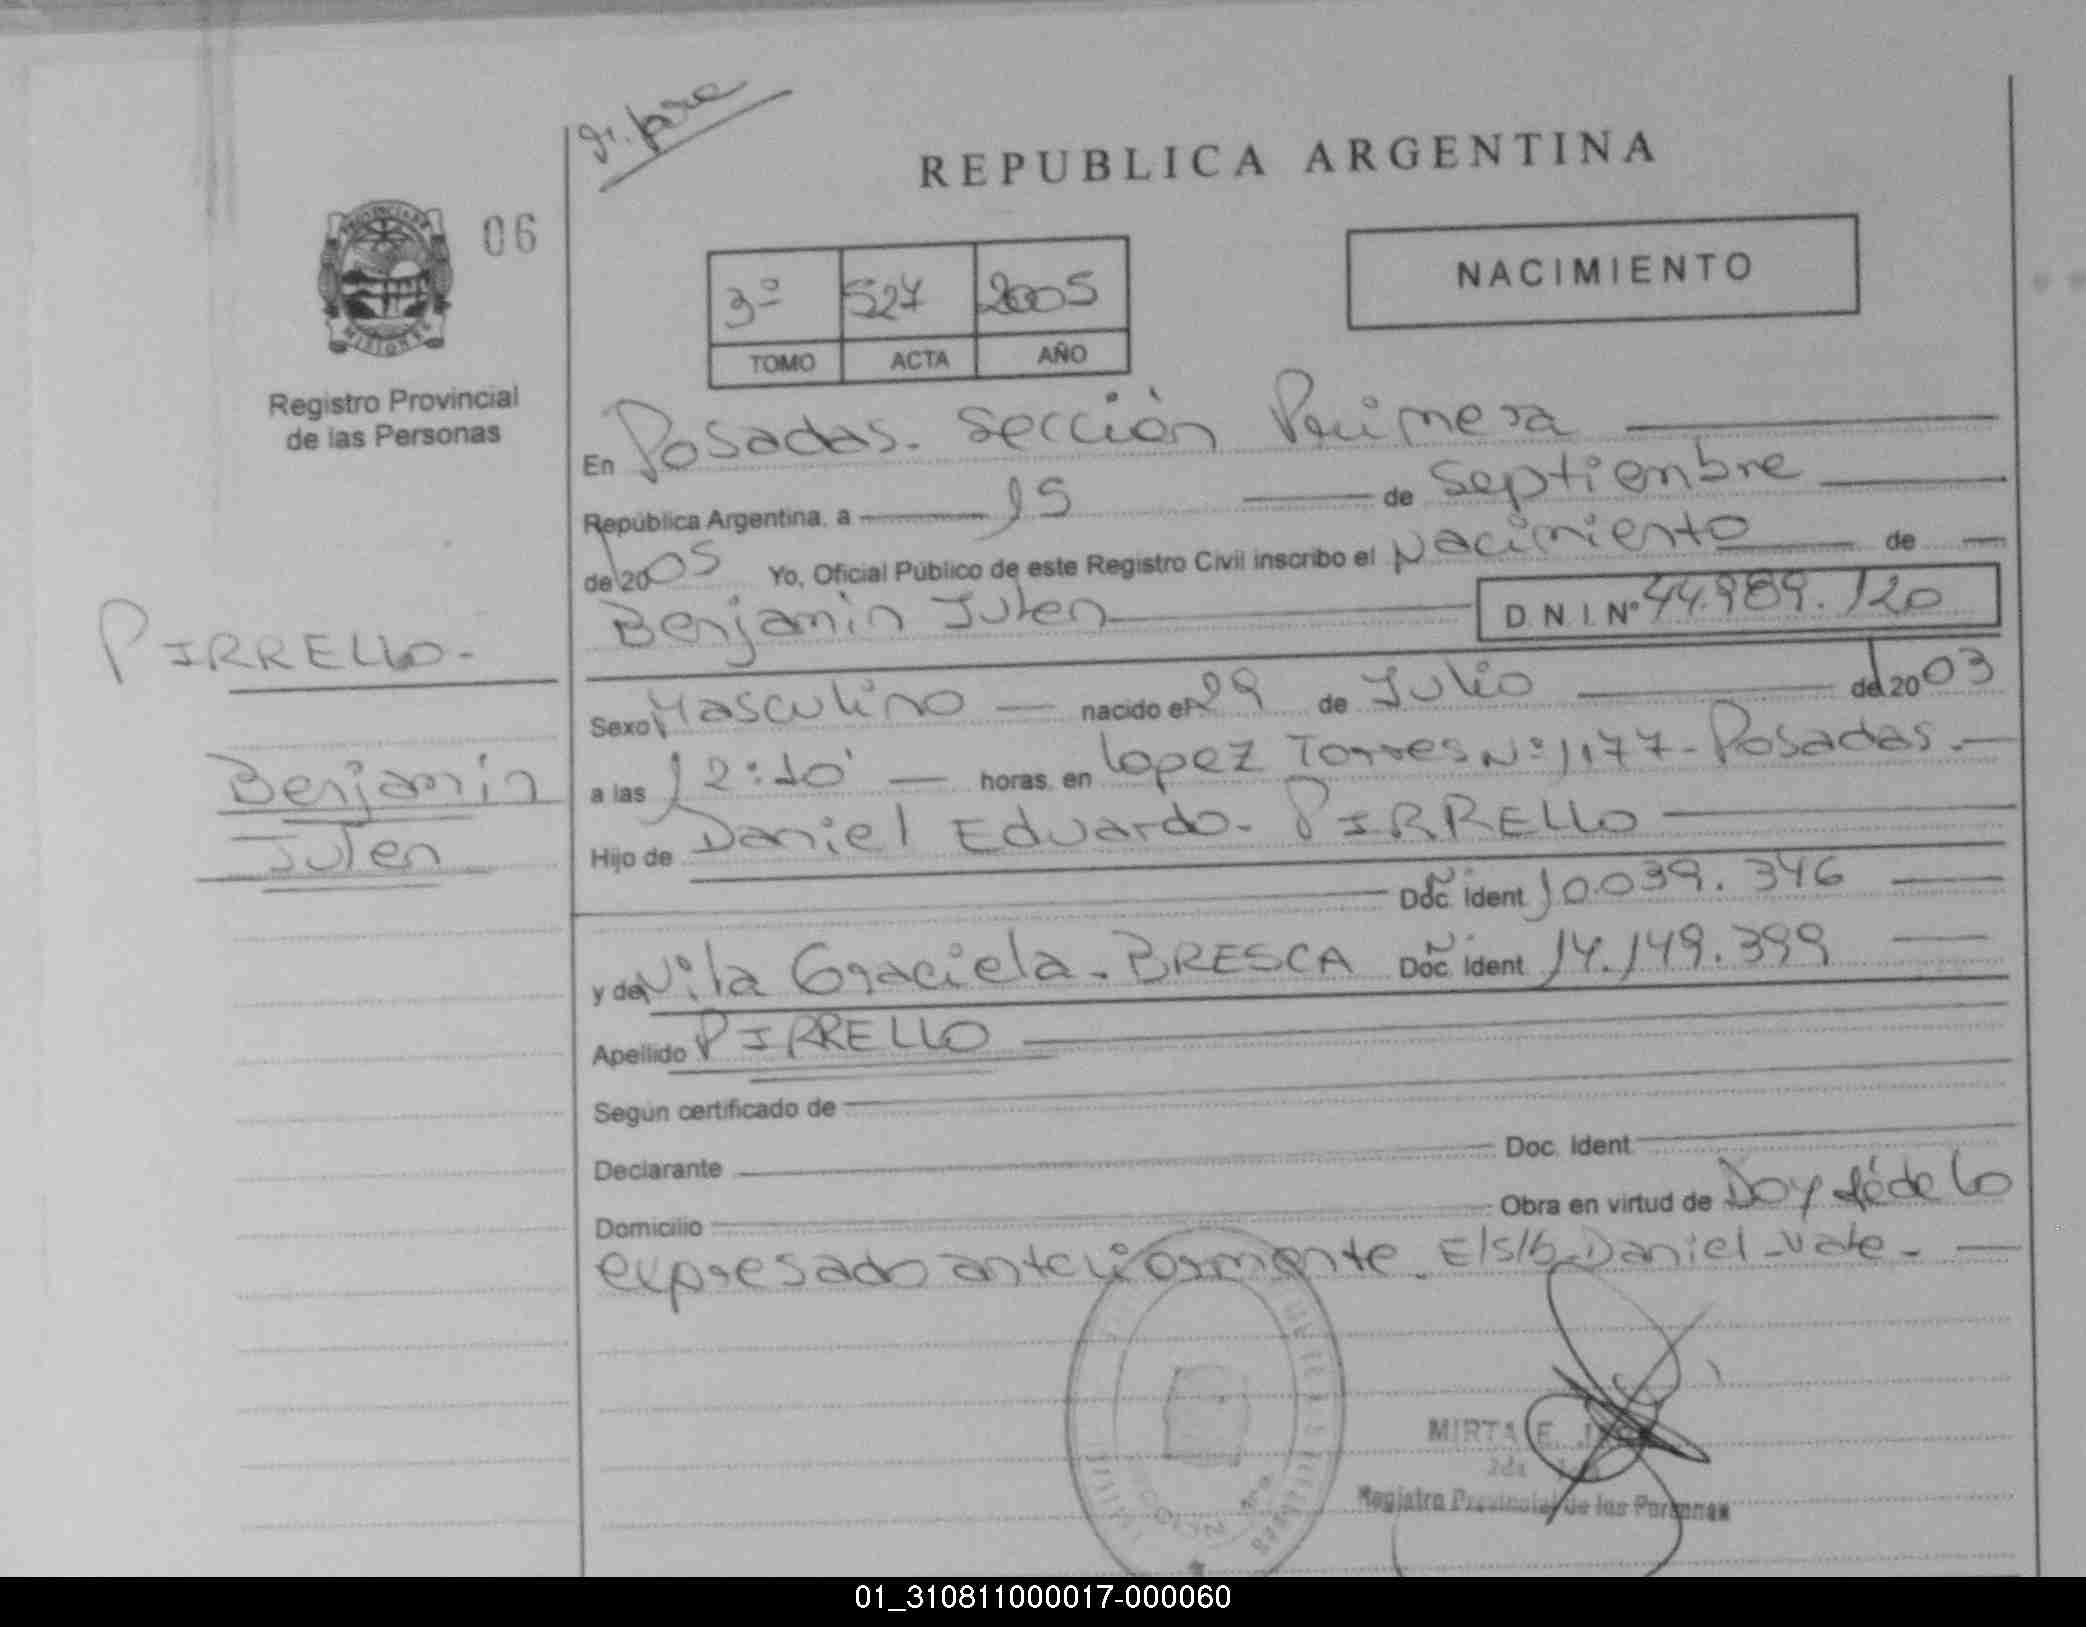 06
REPUBLICA ARGENTINA
NACIMIENTO
3º 527 2005
TOMO ACTA AÑO
PROVINCIA DE
MISIONES
Registro Provincial
de las Personas
En Posadas. Sección Primera
República Argentina, a 15 de Septiembre
de 2005 Yo, Oficial Público de este Registro Civil inscribo el Nacimiento de
Benjamin Julen D.N.I. Nº 44.989.120
PIRRELLO.
Benjamin
Julen
Sexo Masculino nacido el 29 de Julio del 2003
a las 12:10' horas, en Lopez Torres Nº 1177 - Posadas.
Hijo de Daniel Eduardo. PIRRELLO
Doc. Ident 10.039.346
y de Nila Graciela. BRESCA Doc. Ident 14.149.399
Apellido PIRRELLO
Según certificado de
Declarante Doc. Ident.
Domicilio Obra en virtud de Doy fé de lo
expresado anteriormente. E/s/b. Daniel - Vale -
MIRTA E.
Registro Provincial de las Personas
01_310811000017-000060